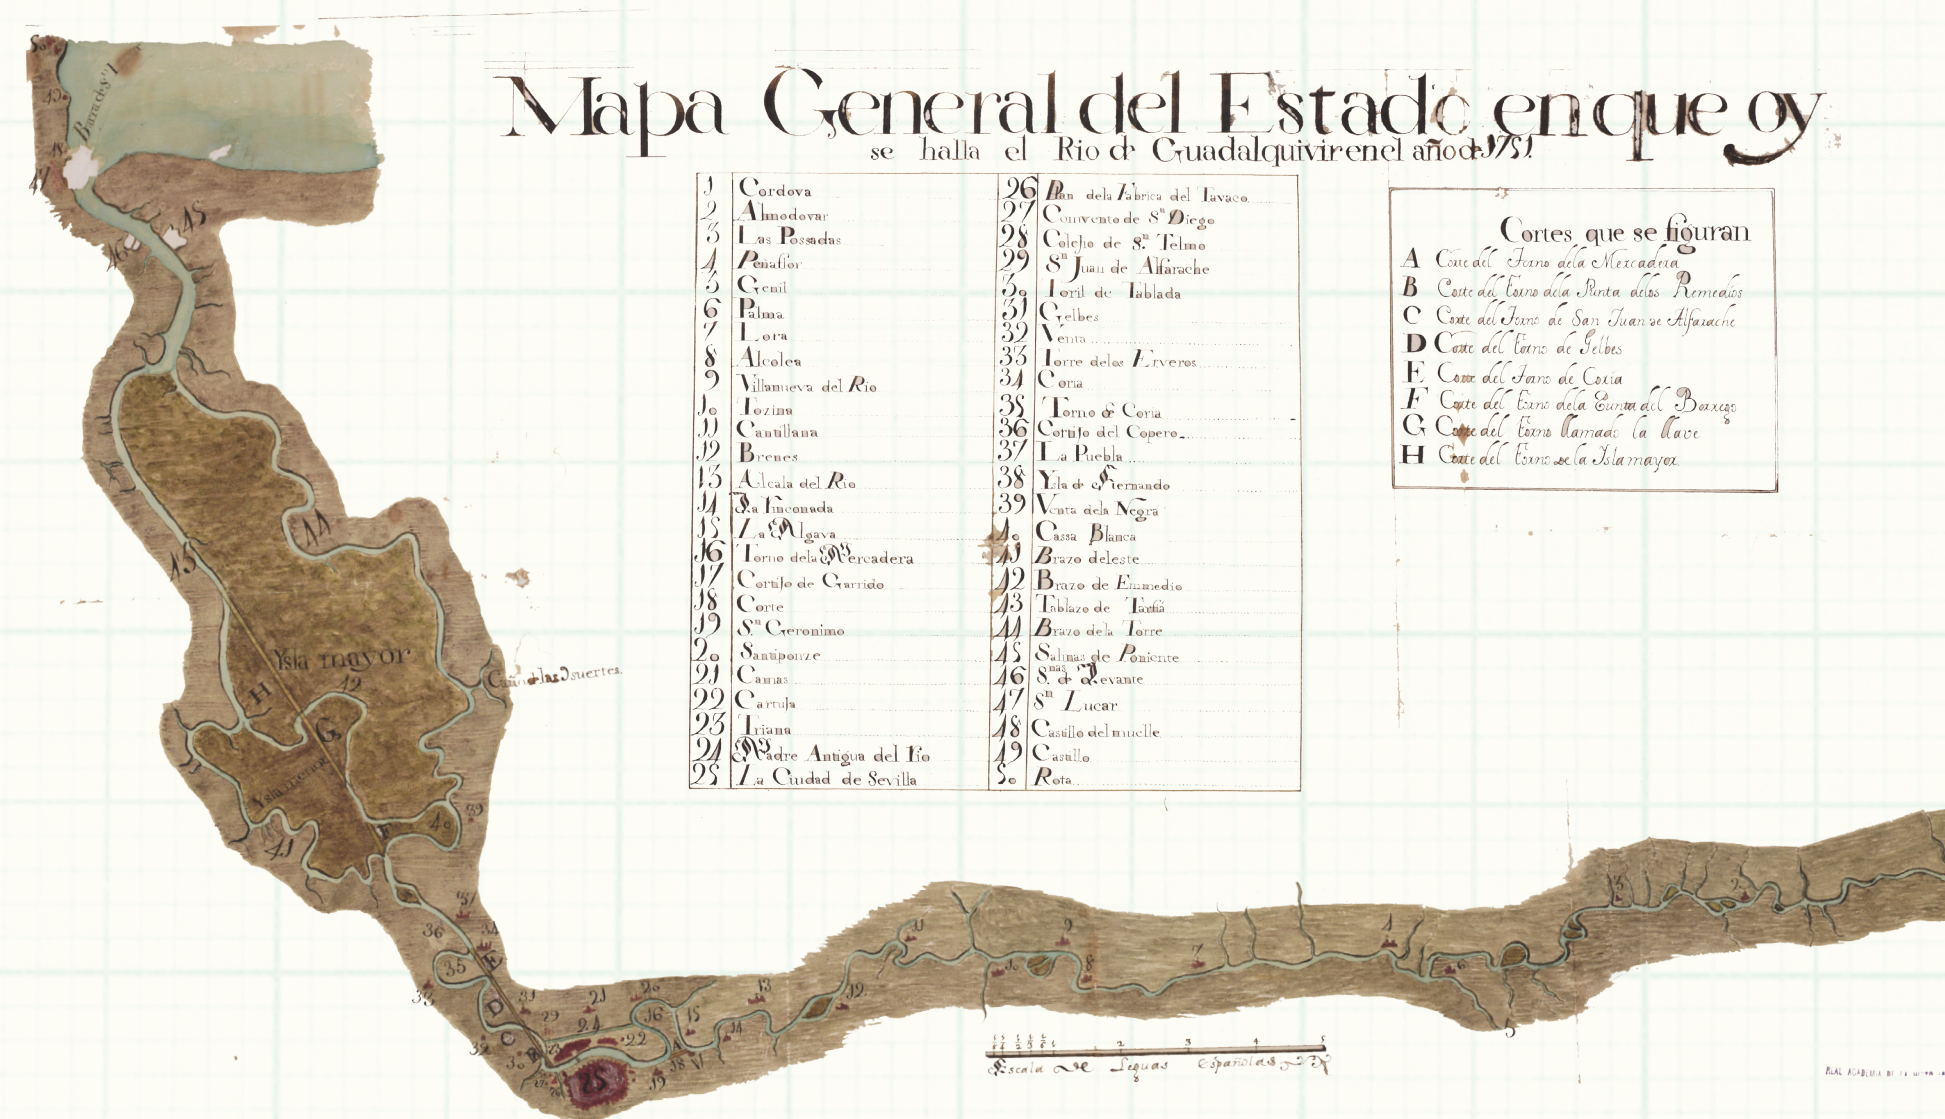 Mapa General del Estado en que oy
se halla el Rio de Guadalquivir en el año de 1751.
1 Cordova
2 Almodovar
3 Las Possadas
4 Peñaflor
5 Genil
6 Palma
7 Lora
8 Alcolea
9 Villanueva del Rio
10 Tozina
11 Cantillana
12 Brenes
13 Alcala del Rio
14 La Rinconada
15 La Algava
16 Torno dela Mercadera
17 Cortijo de Garrido
18 Corte
19 Sn. Geronimo
20 Santiponze
21 Camas
22 Cartuja
23 Triana
24 Madre Antigua del Rio
25 La Ciudad de Sevilla
26 Plan dela Fabrica del Tavaco
27 Comvento de Sn. Diego
28 Colejio de Sn. Telmo
29 Sn Juan de Alfarache
30 Toril de Tablada
31 Gelbes
32 Venta
33 Torre delos Erveros
34 Coria
35 Torno de Coria
36 Cortijo del Copero
37 La Puebla
38 Ysla de Hernando
39 Venta dela Negra
40 Cassa Blanca
41 Brazo deleste
42 Brazo de Enmedio
43 Tablazo de Tarfia
44 Brazo dela Torre
45 Salinas de Poniente
46 Snas de Levante
47 Sn Lucar
48 Castillo del muelle
49 Castillo
50 Rota
Cortes que se figuran
A Corte del Torno dela Mercadera
B Corte del Torno dela Punta delos Remedios
C Corte del Torno de San Juan de Alfarache
D Corte del Torno de Gelbes
E Corte del Torno de Coria
F Corte del Torno dela Punta del Borrego
G Corte del Torno llamado la llave
H Corte del Torno de la Isla mayor
50
49
48
47
Barra de Sn L
45
46
44
43
Ysla mayor
42
Caño de las Dsuertes.
H
G
Ysla menor
F
40
39
41
37
36
34
E
35
33
D
31
21
20
29
24
16
15
13
C
32
30
B
23
22
A
18
17
14
12
25
19
26
11
10
9
8
7
4
6
5
3
2
1 2 3 4 5
Escala de Leguas Españolas
REAL ACADEMIA DE LA